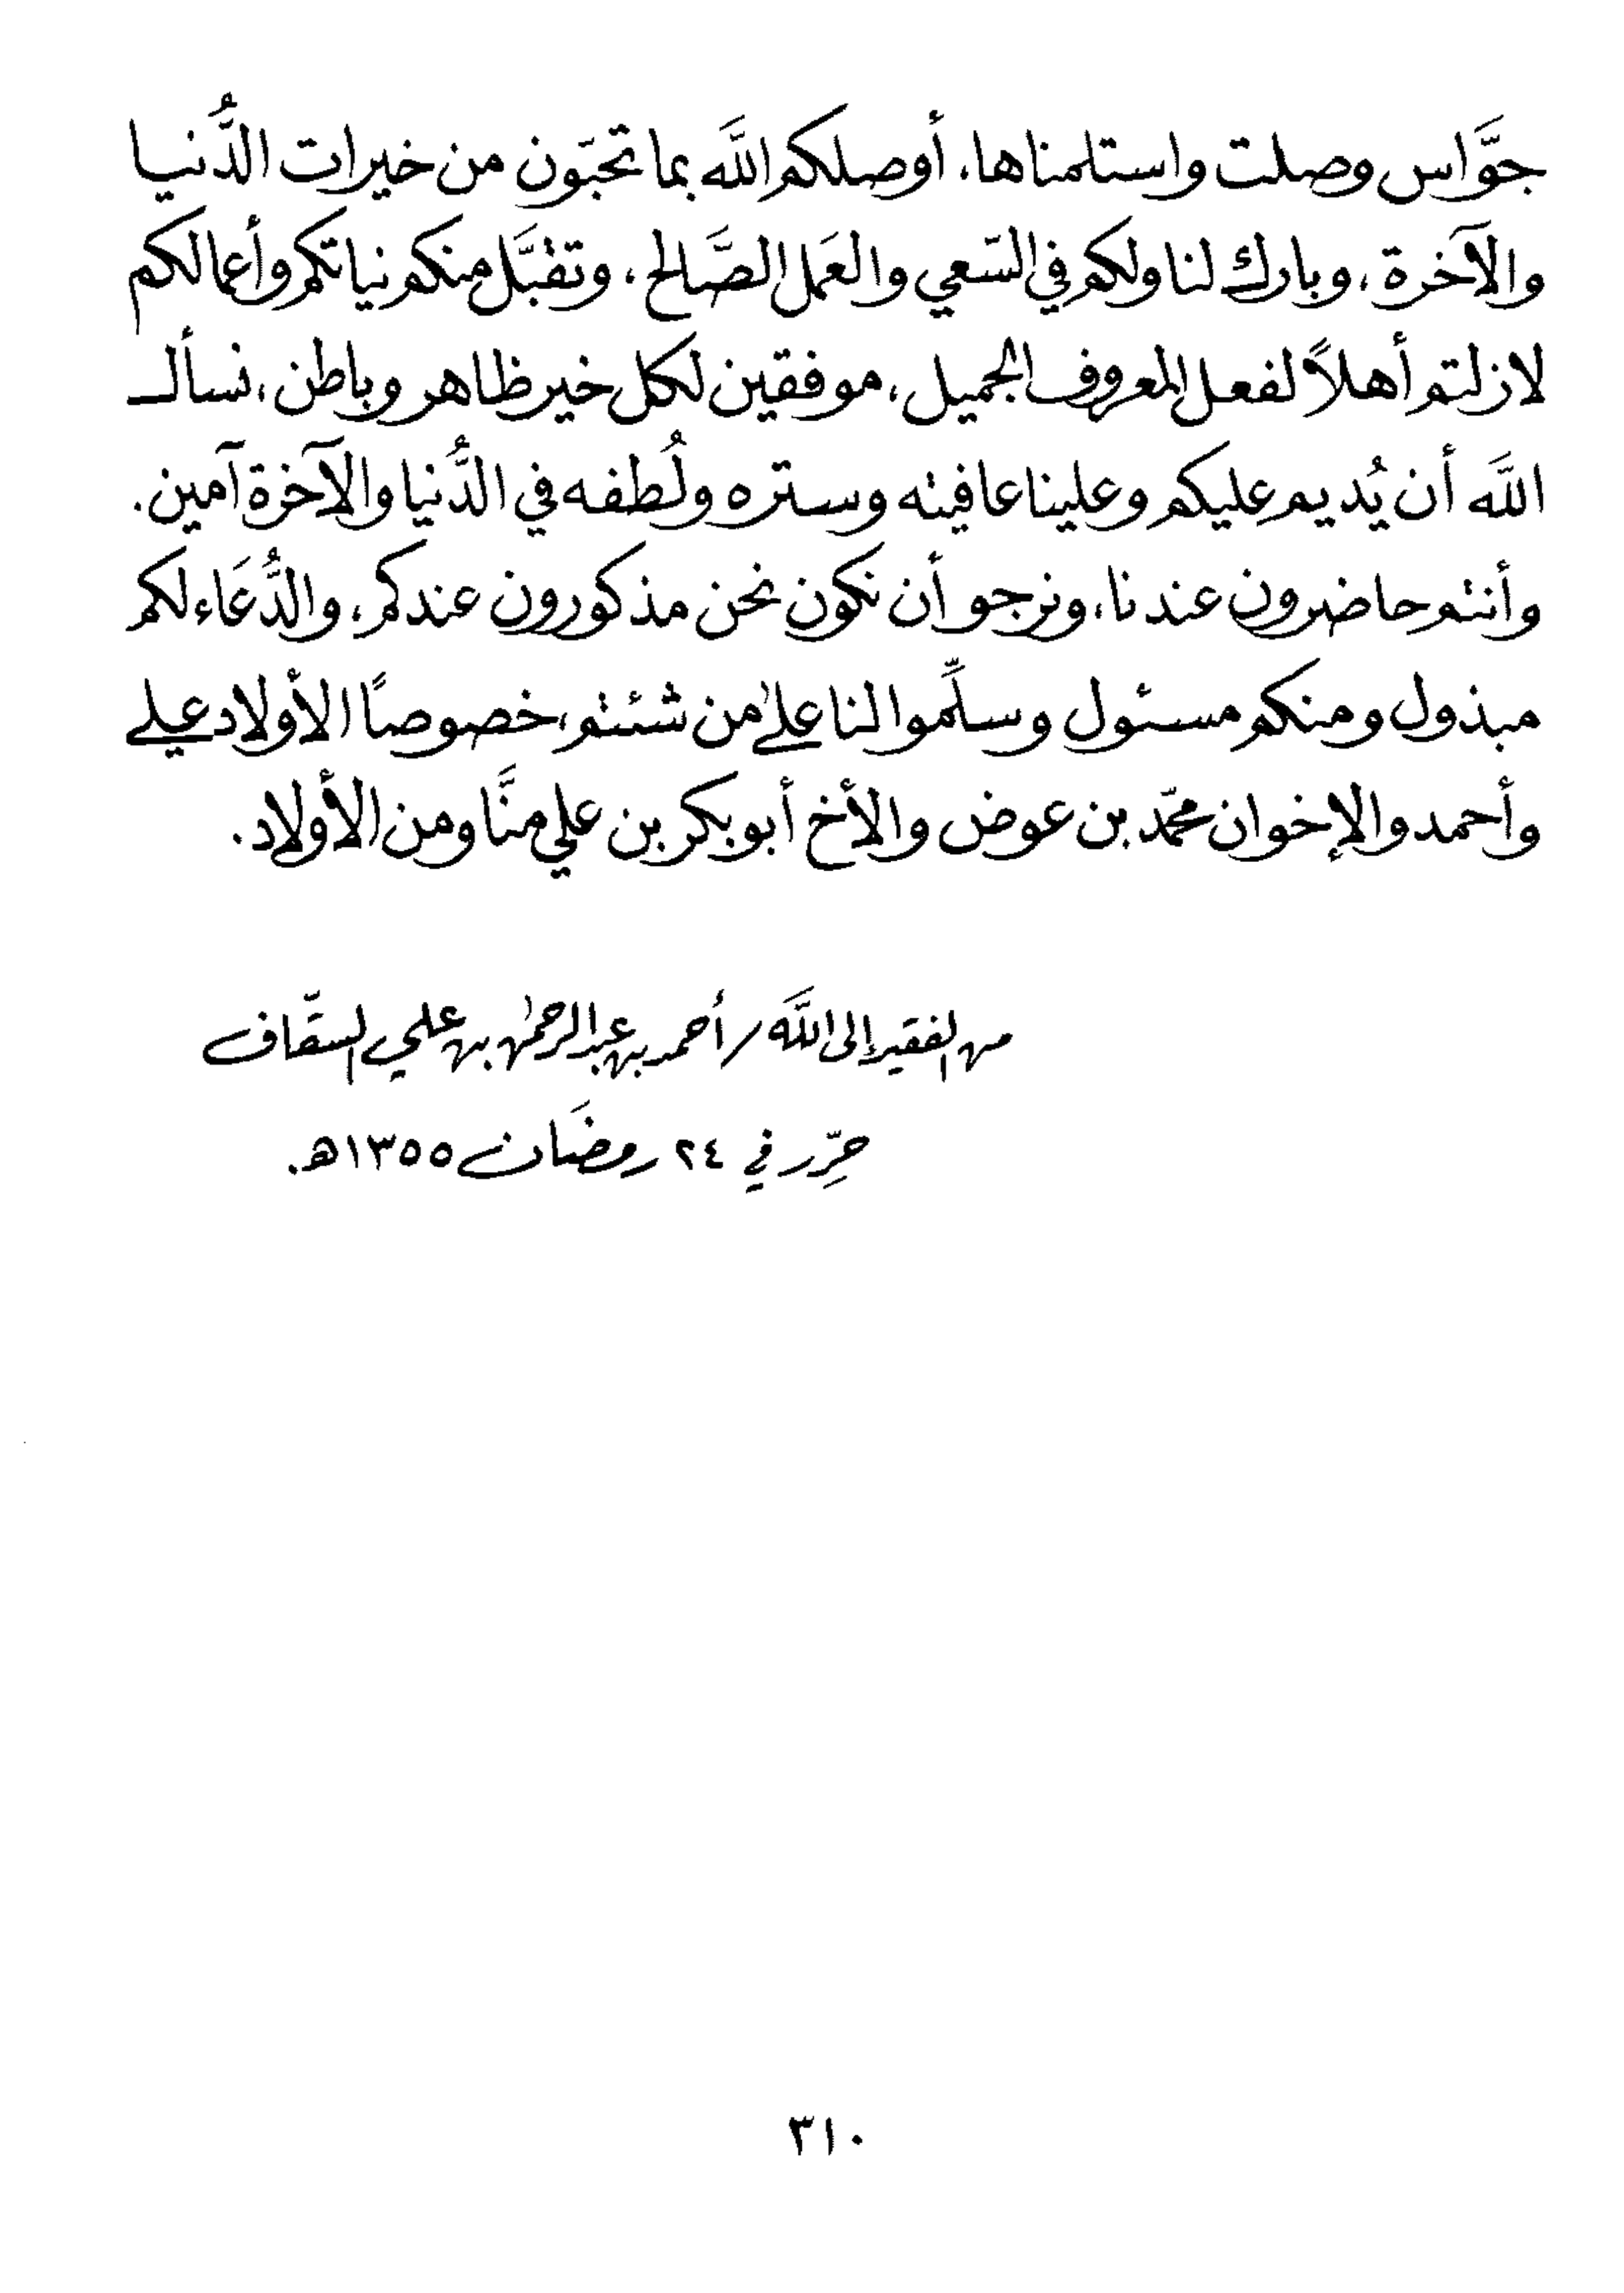 جوَّاس وصلت واستلمناها، أوصلكم اللَّه بما تحبّون من خيرات الدُّنيا
والآخرة، وبارك لنا ولكم في السّعي والعَمل الصَّالح، وتقبَّل منكم نياتكم وأعمالكم
لازلتم أهلاً لفعل المعروف الجميل، موفقين لكل خير ظاهر وباطن، نسأل
اللَّه أن يُديم عليكم وعلينا عافيته وستره ولُطفه في الدُّنيا والآخرة آمين.
وأنتم حاضرون عندنا، ونرجو أن نكون نحن مذكورون عندكم، والدُّعَاء لكم
مبذول ومنكم مسئول وسلِّموا لنا علىٰ من شئتم، خصوصًا الأولاد علي
وأحمد والإخوان محمّد بن عوض والأخ أبوبكر بن علي منَّا ومن الأولاد.
من الفقير إلى اللَّه / أحمد بن عبدالرحمٰن بن علي السقّاف
حرِّر في ٢٤ رمضَان ١٣٥٥هـ.
٣١٠